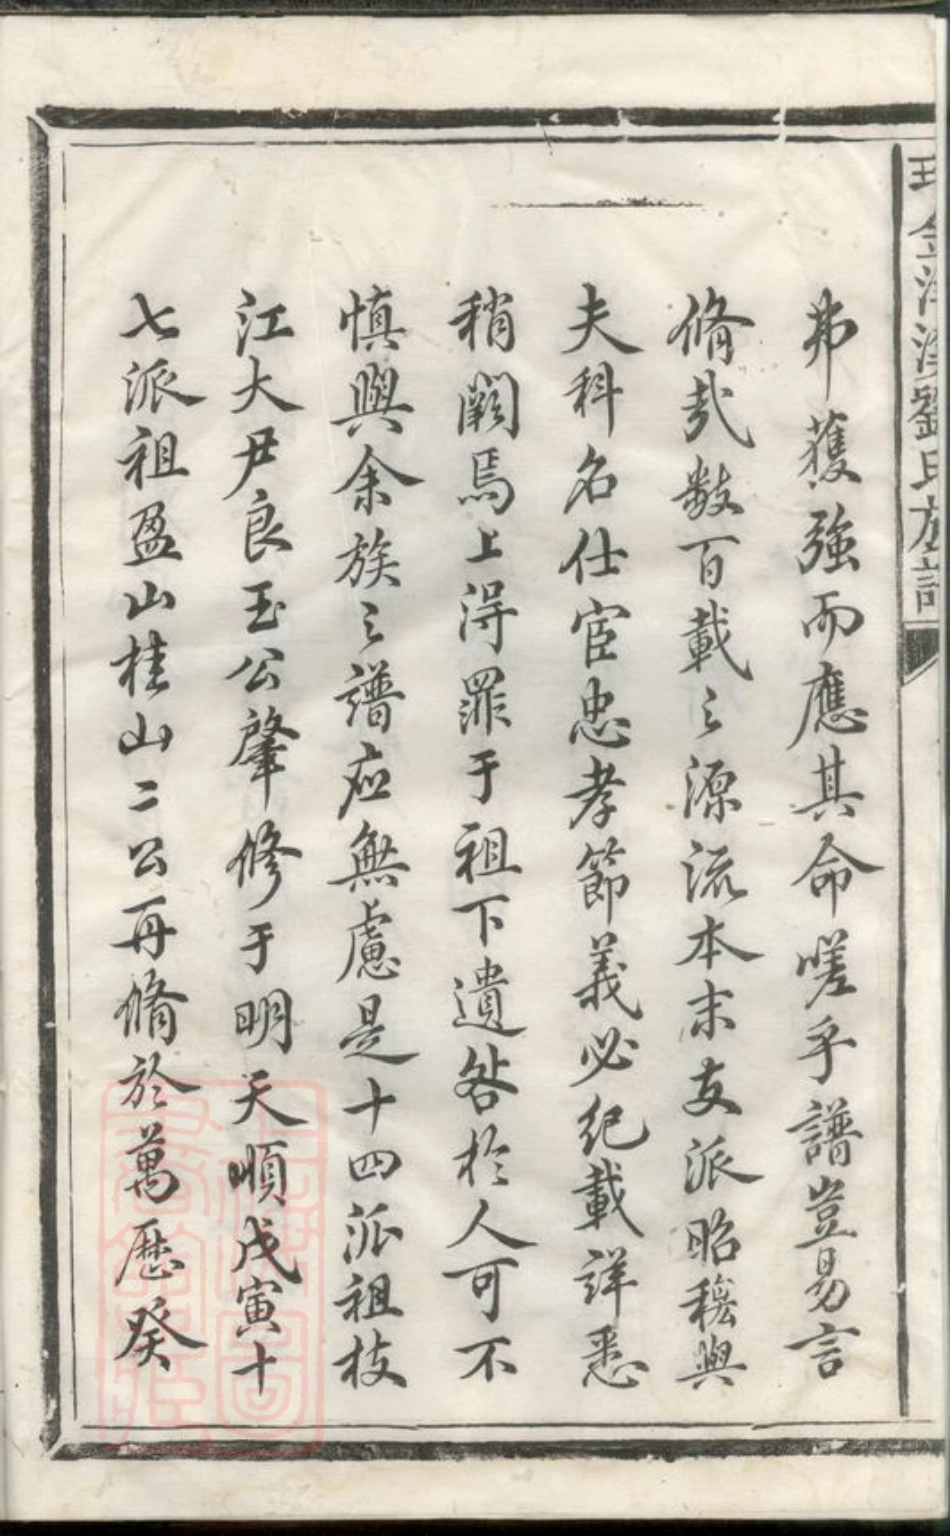 劉氏族譜
弗獲強而應其命嗟乎譜豈易言
脩哉数百載之源流本末支派昭穆與
夫科名仕宦忠孝節義必纪載詳悉
稍闕焉上得罪于祖下遺咎於人可不
慎與余族之譜应無慮是十四派祖枝
江大尹良玉公肇修于明天順戊寅十
七派祖盈山桂山二公再脩於萬歷癸